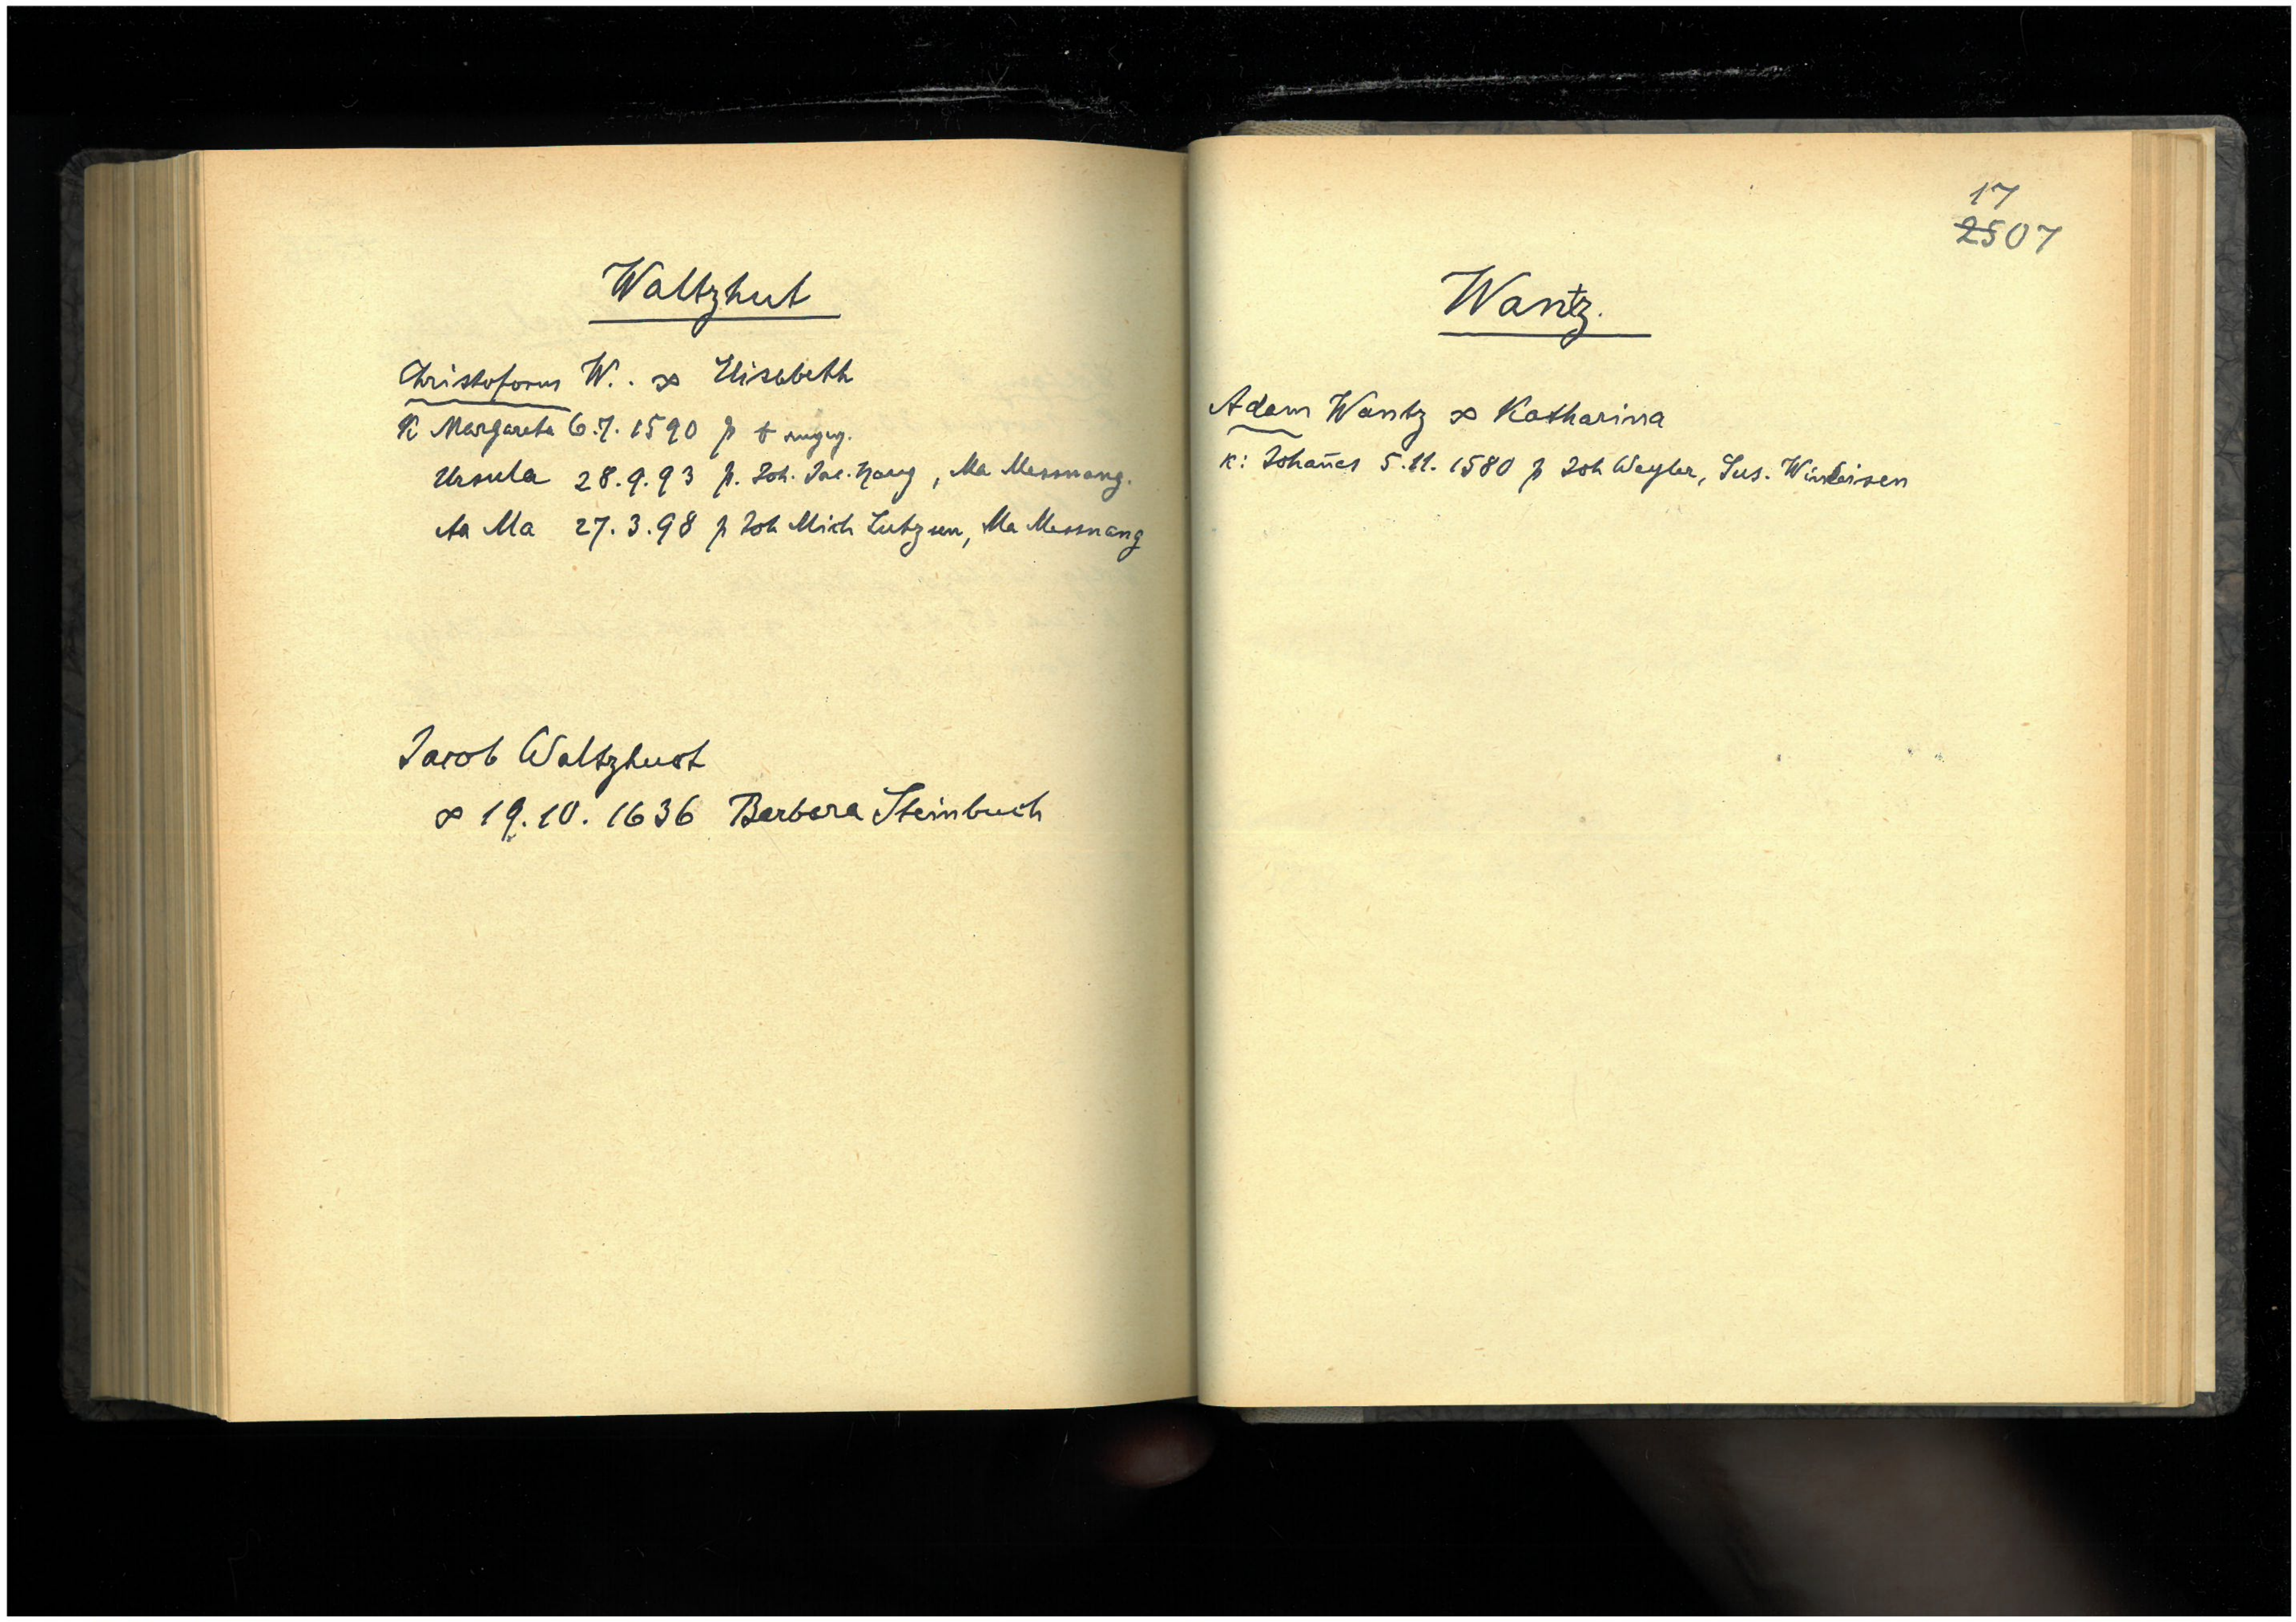 Waltzhut
Christoforus W. . ∞ Elisabeth
K Margareta 6.7. 1590 p +
Ursula 28.9.93 p. Joh. Jac. Haug, Ma Messnang.
Aa Ma 27.3.98 p Joh Mich Lutz, Ma Messnang
Jacob Waltzhuot
∞ 19.10. 1636 Barbara Steinbuch
17
2507
Wantz.
Adam Wantz ∞ Katharina
K: Johan̄es 5.11. 1580 p Joh Weyler, Sus.